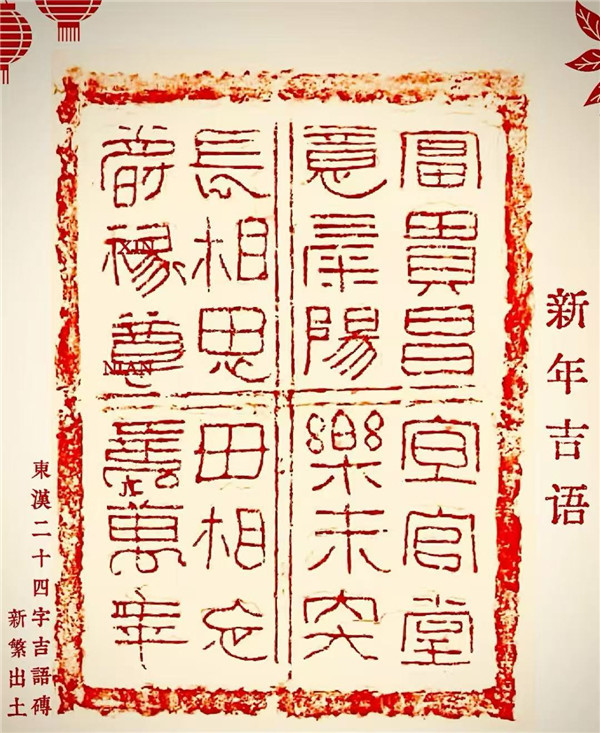 新年吉语
富貴昌宜官堂
意氣陽樂未央
長相思毋相忘
爵祿尊壽萬年
XIN
NIAN
東漢二十四字吉語磚
新繁出土